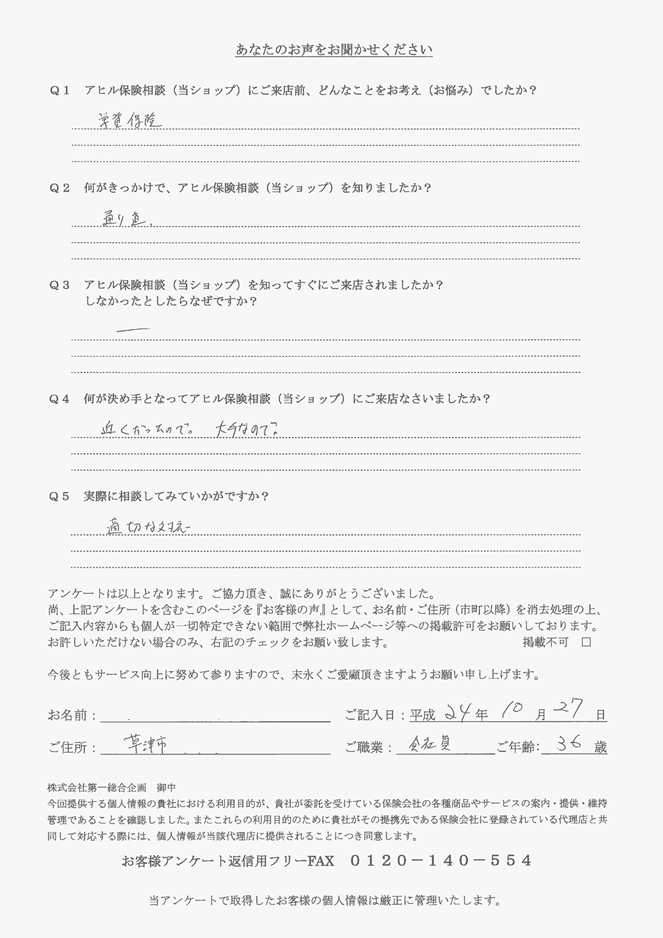 あなたのお声をお聞かせください
Q1 アヒル保険相談（当ショップ）にご来店前、どんなことをお考え（お悩み）でしたか？
学資保険
Q2 何がきっかけで、アヒル保険相談（当ショップ）を知りましたか？
通り道.
Q3 アヒル保険相談（当ショップ）を知ってすぐにご来店されましたか？
しなかったとしたらなぜですか？
—
Q4 何が決め手となってアヒル保険相談（当ショップ）にご来店なさいましたか？
近くだったので。 大手なので。
Q5 実際に相談してみていかがですか？
適切な
アンケートは以上となります。ご協力頂き、誠にありがとうございました。
尚、上記アンケートを含むこのページを『お客様の声』として、お名前・ご住所（市町以降）を消去処理の上、
ご記入内容からも個人が一切特定できない範囲で弊社ホームページ等への掲載許可をお願いしております。
お許しいただけない場合のみ、右記のチェックをお願い致します。 掲載不可 □
今後ともサービス向上に努めて参りますので、末永くご愛顧頂きますようお願い申し上げます。
お名前： ご記入日：平成 24 年 10 月 27 日
ご住所： 草津市 ご職業： 会社員 ご年齢： 36 歳
株式会社第一総合企画 御中
今回提供する個人情報の貴社における利用目的が、貴社が委託を受けている保険会社の各種商品やサービスの案内・提供・維持
管理であることを確認しました。またこれらの利用目的のために貴社がその提携先である保険会社に登録されている代理店と共
同して対応する際には、個人情報が当該代理店に提供されることにつき同意します。
お客様アンケート返信用フリーFAX 0120－140－554
当アンケートで取得したお客様の個人情報は厳正に管理いたします。